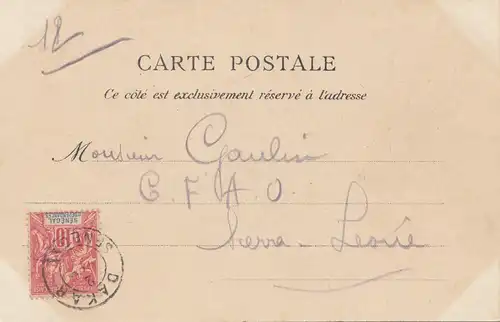 18
CARTE POSTALE
Ce côté est exclusivement réservé à l'adresse
Monsieur Gaulin
C. F. A. O.
Sierra-Leone
SÉNÉGAL
10
DAKAR